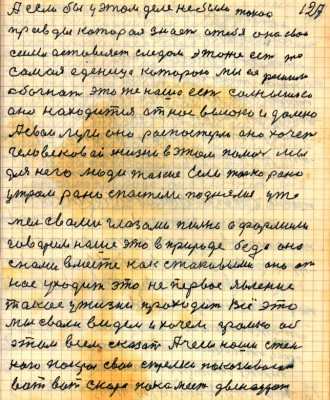 127
А если бы у этом деле не было такое
правды которая знает от себя она своо
сама оставляет следом это же ест то
самая еденица которою мы ея решили
обочнат это же нашо ест солнышко
оно находится от нас высоко и далеко
А свои лучи оно распостери оно хочет
человековой жизни в этом помоч мы
для него люди такие Если только рано
утром рано спостели поднялис уже
мы своими глазами полно оформили
говорим наше это в природе беда она
снами вместе как стаковыми она от
нас уходит это не первое явление
такое у жизни проходит Всё это
мы свами видем и хочем громко об
этом всем сказат А чесы наши стен
ного покроя свои стрелки показывают
вот вот скоро покажет двенадцат